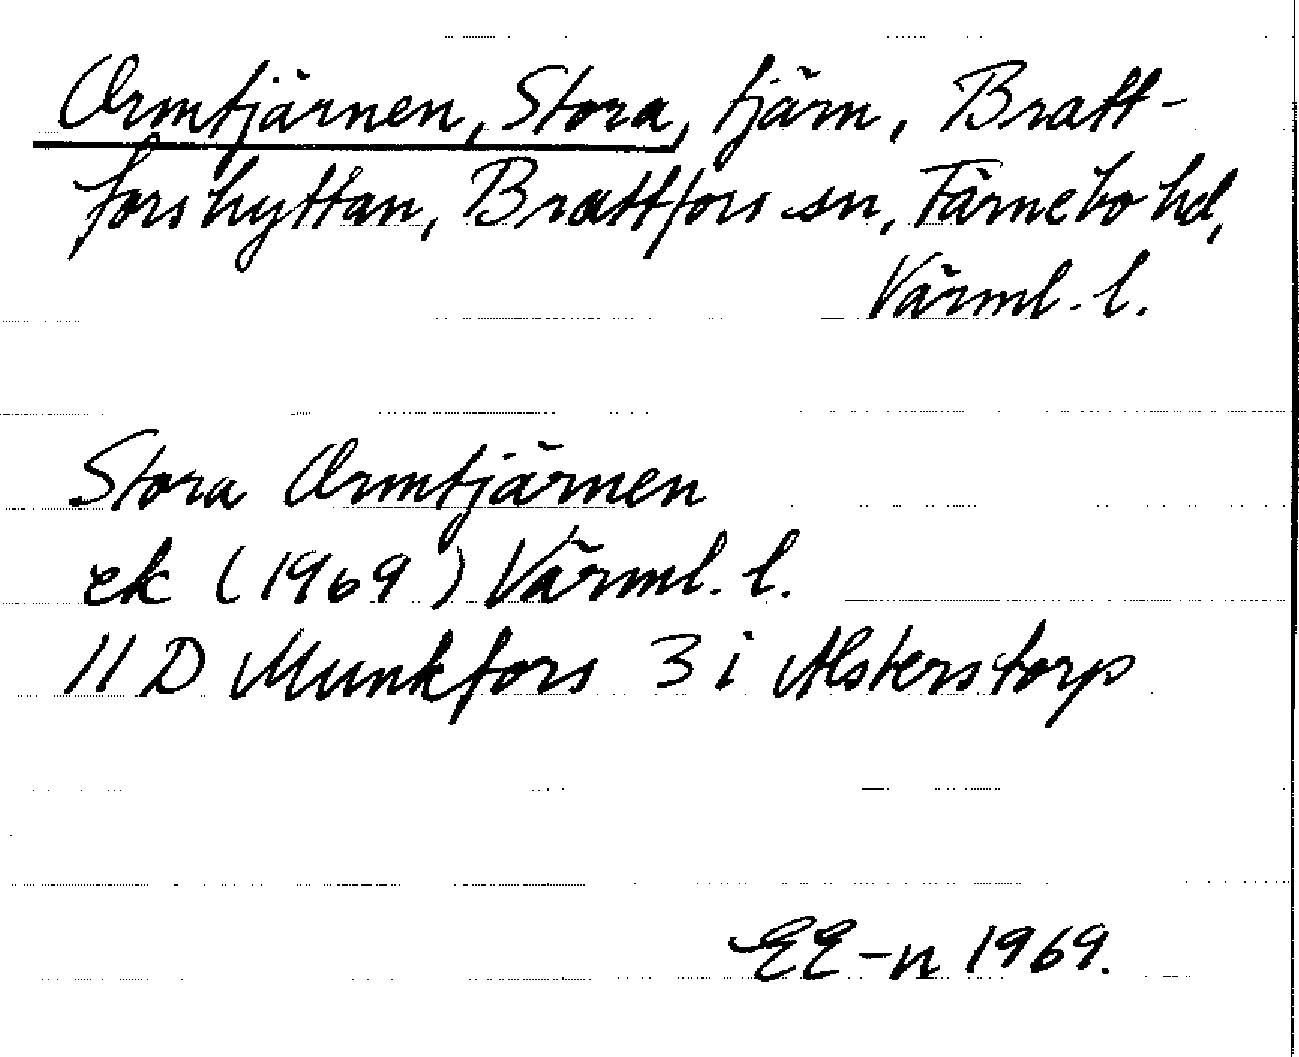 Ormtjärnen, Stora, tjärn, Bratt-
forshyttan, Brattfors sn, Färnebo hd,
Värml. l.
Stora Ormtjärnen
ek (1969) Värml. l.
11 D Munkfors 3 i Alsterstorp
EE-n 1969.